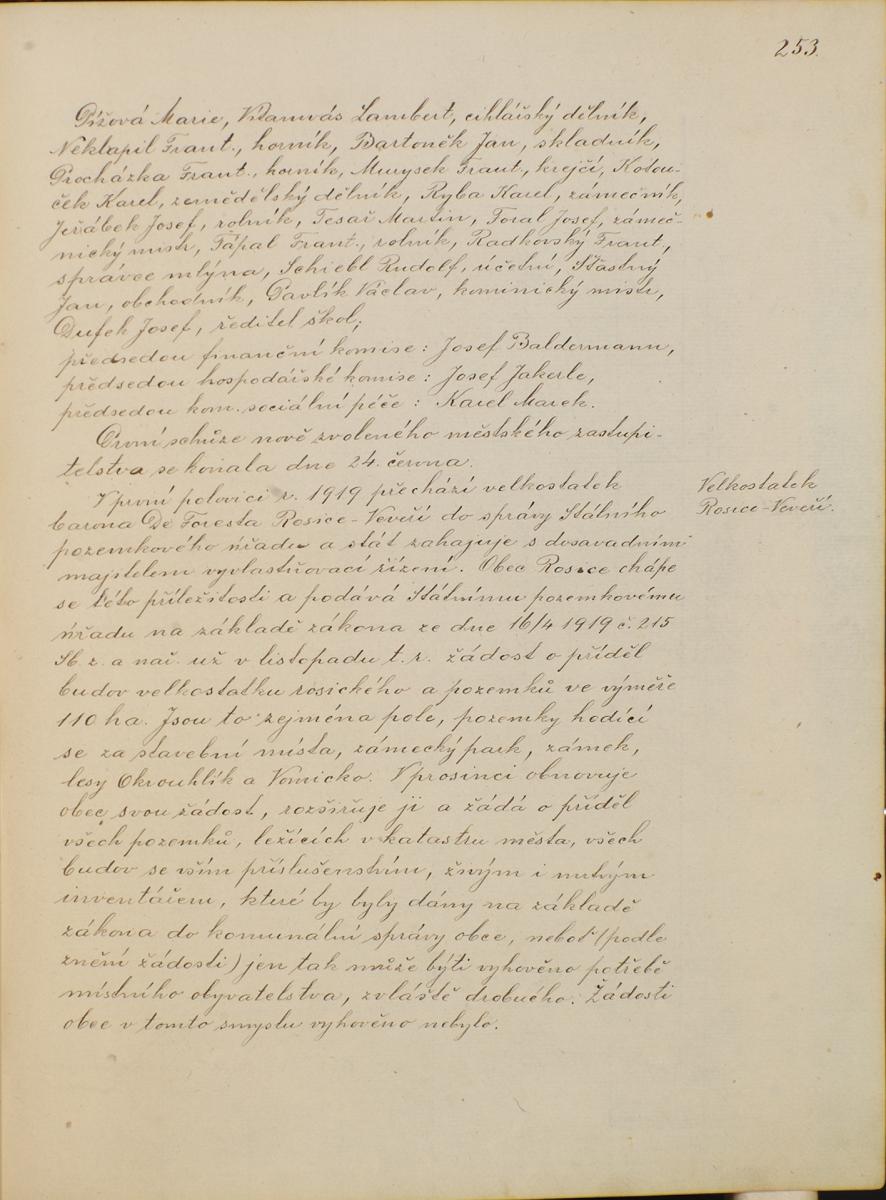 253.
Pížová Marie, Vitamvás Lambert, cihlářský dělník,
Neklapil Frant., horník, Bartoněk Jan, skladník,
Procházka Frant., horník, Murysek Frant., krejčí, Kotou-
ček Karel, zemědělský dělník, Ryba Karel, zámečník,
Jeřábek Josef, rolník, Tesař Martin, Foral Josef, zámeč-
nický mistr, Fápal Frant., rolník, Radkovský Frant.,
správce mlýna, Schiebl Rudolf, účetní, Šťastný
Jan, obchodník, Pavlík Václav, kominický mistr,
Dufek Josef, ředitel škol;
předsedou finanční komise: Josef Baldermann,
předsedou hospodářské komise: Josef Jakerle,
předsedou kom. sociální péče: Karel Marek.
První schůze nově zvoleného městského zastupi-
telstva se konala dne 24. června.
V první polovici r. 1919 přechází velkostatek
barona De Foresta Rosice-Veveří do správy Státního
pozemkového úřadu a stát zahajuje s dosavadním
majitelem vyvlastňovací řízení. Obec Rosice chápe
se této příležitosti a podává Státnímu pozemkovému
úřadu na základě zákona ze dne 16/4 1919 č. 215
Sb. z. a nař. už v listopadu t. r. žádost o příděl
budov velkostatku rosického a pozemků ve výměře
110 ha. Jsou to zejména pole, pozemky hodící
se za stavební místa, zámecký park, zámek,
lesy Okrouhlík a Vomicko. V prosinci obnovuje
obec svou žádost, rozšiřuje ji a žádá o příděl
všech pozemků, ležících v katastru města, všech
budov se vším příslušenstvím, živým i mrtvým
inventářem, které by byly dány na základě
zákona do komunální správy obce, neboť (podle
znění žádosti) jen tak může býti vyhověno potřebě
místního obyvatelstva, zvláště drobného. Žádosti
obce v tomto smyslu vyhověno nebylo.
Velkostatek
Rosice-Veveří.